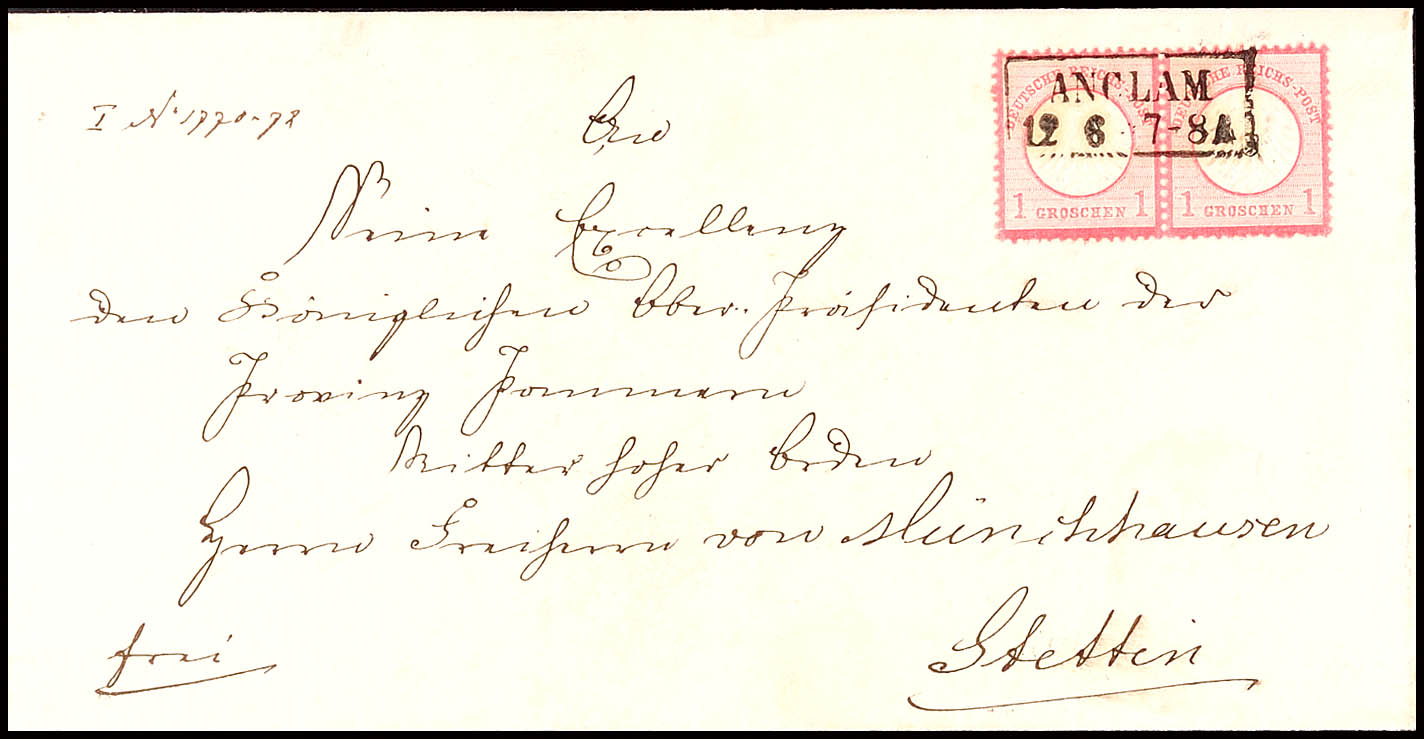 I No 1770-72
ANCLAM
12 6 7-8 A
DEUTSCHE REICHS-POST DEUTSCHE REICHS-POST
1 GROSCHEN 1 1 GROSCHEN 1
An
Seine Excellenz
den Königlichen Ober-Präsidenten der
Provinz Pommern
Ritter hoher Orden
Herrn Freiherrn von Münchhausen
Stettin
frei